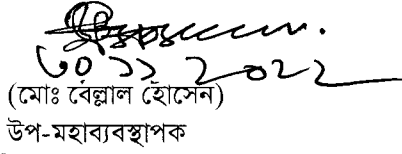 ৩০ ১১ ২০২২
(মোঃ বেল্লাল হোসেন)
উপ-মহাব্যবস্থাপক